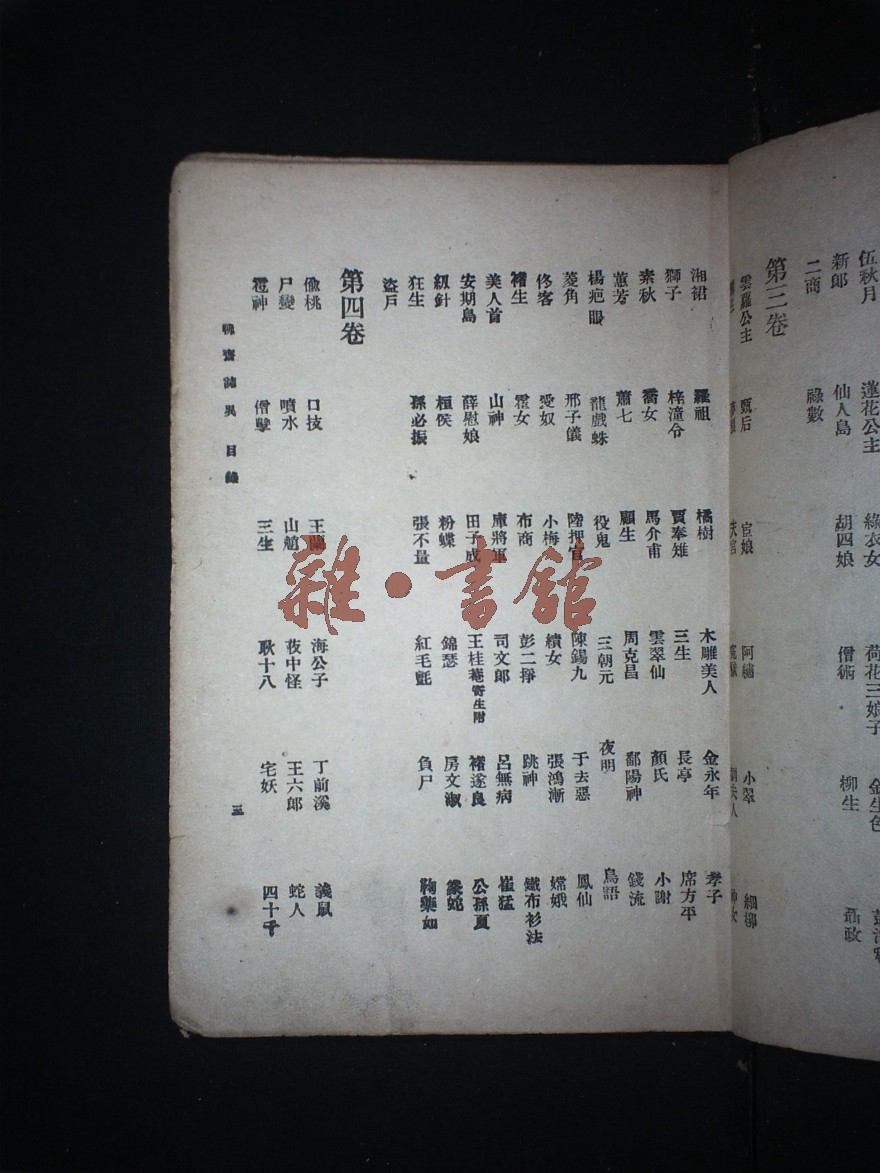 伍秋月 蓮花公主 綠衣女 荷花三娘子 金生色
新郎 仙人島 胡四娘 僧術 柳生 聶政
二商 祿數
第三卷
雲蘿公主 甄后 宦娘 阿繡 小翠 細柳
湘裙 羅祖 橘樹 木雕美人 金永年 孝子
獅子 梓潼令 賈奉雉 三生 長亭 席方平
素秋 喬女 馬介甫 雲翠仙 顏氏 小謝
蕙芳 蕭七 顧生 周克昌 鄱陽神 錢流
楊疤眼 龍戲蛛 役鬼 三朝元 夜明 鳥語
菱角 邢子儀 陸押官 陳錫九 于去惡 鳳仙
佟客 愛奴 小梅 績女 張鴻漸 嫦娥
褚生 霍女 布商 彭二掙 跳神 鐵布衫法
美人首 山神 庫將軍 司文郎 呂無病 崔猛
安期島 薛慰娘 田子成 王桂菴寄生附 褚遂良 公孫夏
紉針 桓侯 粉蝶 錦瑟 房文淑
狂生 孫必振 張不量 紅毛氈 負尸 鞠藥如
盜戶
第四卷
偸桃 口技 王蘭 海公子 丁前溪 義鼠
尸變 噴水 山魈 荍中怪 王六郎 蛇人
雹神 僧孽 三生 耿十八 宅妖 四十千
聊齋誌異 目錄 三
雜·書館